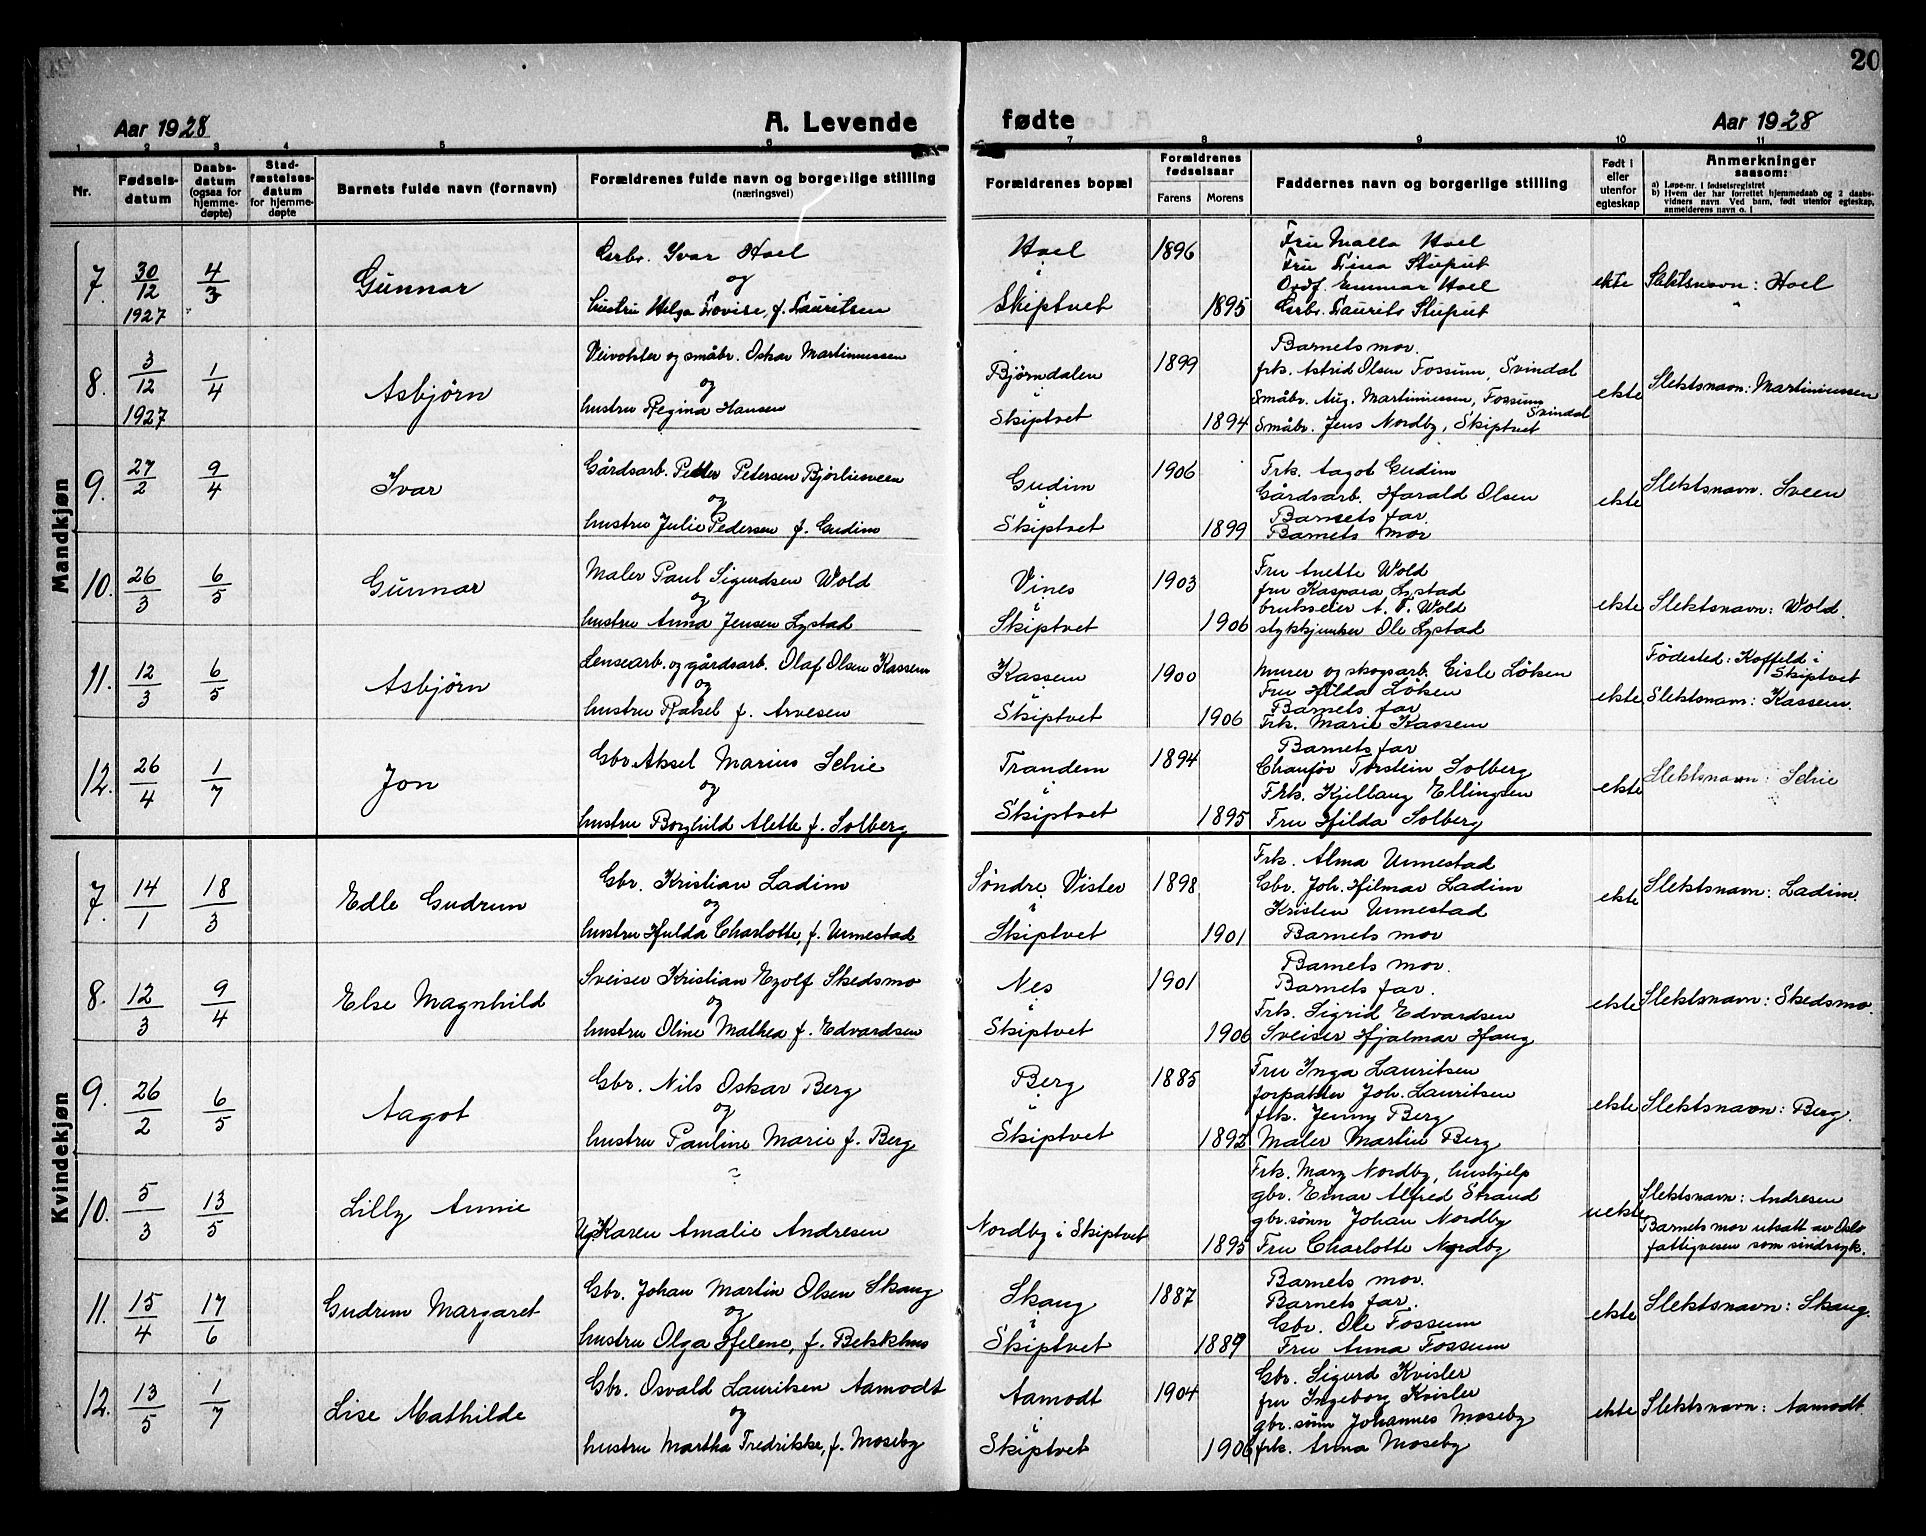 20
Aar 1928
A. Levende
fødte
Aar 1928
1 2 3 4 5 6 7 8 9 10 11
Nr.
Fødsels-
datum
Daabs-
datum
(ogsaa for
hjemme-
døpte)
Stad-
fæstelses-
datum
for hjemme-
døpte
Barnets fulde navn (fornavn)
Forældrenes fulde navn og borgerlige stilling
(næringsvei)
Forældrenes bopæl
Forældrenes
fødselsaar
Farens Morens
Faddernes navn og borgerlige stilling
Født i
eller
utenfor
egteskap
Anmerkninger
saasom:
a) Løpe-nr. i fødselsregistret
b) Hvem der har forrettet hjemmedaab og 2 daabs-
vidners navn. Ved barn, født utenfor egteskap,
anmelderens navn o. l
Mandkjøn
7. 30/12 1927 4/3
Gunnar
Grbr. Ivar Hoel
og
hustru Helga Lovise, f. Lauritsen
Hoel
i
Skiptvet
1896
1895
Fru Malla Hoel
Fru Lina Stuput
Ordf. Gunnar Hoel
Grbr. Laurits Stuput
ekte
Slektsnavn: Hoel
8. 3/12 1927 1/4
Asbjørn
Veivokter og småbr. Oskar Martinussen
og
hustru Regina Hansen
Bjørndalen
i
Skiptvet
1899
1894
Barnets mor.
frk. Astrid Olsen Fossum, Svindal
Småbr. Aug. Martinussen, Fossum
Svindal
Småbr. Jens Nordby, Skiptvet
ekte
Slektsnavn: Martinussen
9. 27/2 9/4
Ivar
Gårdsarb. Petter Petersen Bjørlisveen
og
hustru Julie Pedersen f. Gudim
Gudim
i
Skiptvet
1906
1899
Frk. Aagot Gudim
Gårdsarb. Harald Olsen
Barnets far.
Barnets mor
ekte
Slektsnavn. Sveen
10. 26/3 6/5
Gunnar
Maler Paul Sigurdsen Wold
og
hustru Anna Jensen Lystad
Vines
i
Skiptvet
1903
1906
Fru Anette Wold
fru Kaspara Lystad
brukseier A. T. Wold
stykkjunker Ole Lystad
ekte
Slektsnavn: Wold.
11. 12/3 6/5
Asbjørn
Lensearb. og gårdsarb. Olaf Olsen Kassem
og
hustru Rakel f. Arvesen
Kassem
i
Skiptvet
1900
1906
Murer og skogsarb. Gisle Løken
Fru Hilda Løken
Barnets far
Frk. Marie Kassem
ekte
Fødested: Koffeld i
Skiptvet
Slektsnavn: Kassem.
12. 26/4 1/7
Jon
Gbr. Aksel Marius Schie
og
hustru Borghild Alette f. Solberg
Trandem
i
Skiptvet
1894
1895
Barnets far
Chaufør Torstein Solberg
Frk. Kjellaug Ellingsen
Fru Hilda Solberg
ekte
Slektsnavn: Schie
Kvindekjøn
7. 14/1 18/3
Edle Gudrun
Gbr. Kristian Ladim
og
hustru Hulda Charlotte, f. Unnestad
Søndre Vister
i
Skiptvet
1898
1901
Frk. Alma Unnestad
Gbr. Joh. Hilmar Ladim
Kristen Unnestad
Barnets mor
ekte
Slektsnavn: Ladim.
8. 12/3 9/4
Else Magnhild
Sveiser Kristian Eyolf Skedsmo
og
hustru Oline Mathea f. Edvardsen
Nes
i
Skiptvet
1901
1906
Barnets mor.
Barnets far.
Frk. Sigrid Edvardsen
Sveiser Hjalmar Haug
ekte
Slektsnavn: Skedsmo.
9. 26/2 6/5
Aagot
Gbr. Nils Oskar Berg
og
hustru Pauline Marie f. Berg
Berg
i
Skiptvet
1885
1892
Fru Inga Lauritsen
forpakter Joh. Lauritsen
frk. Jenny Berg
Maler Martin Berg
ekte
Slektsnavn: Berg.
10. 5/3 13/5
Lilly Annie
?
Ug. Karen Amalie Andresen
Nordby i Skiptvet
1895
Frk. Mary Nordby, hushjelp
gbr. Einar Alfred Strand
gbr.sønn Johan Nordby
Fru Charlotte Nordby
uekte
Slektsnavn: Andresen
Barnets mor utsatt av Oslo
fattigvesen som sindssyk.
11. 15/4 17/6
Gudrun Margaret
Gbr. Johan Martin Olsen Skaug
og
hustru Olga Helene, f. Bekkhus
Skaug
i
Skiptvet
1887
1889
Barnets mor.
Barnets far.
Gbr. Ole Fossum
Fru Anna Fossum
ekte
Slektsnavn: Skaug.
12. 13/5 1/7
Lise Mathilde
Gbr. Osvald Lauritsen Aamodt
og
hustru Martha Fredrikke, f. Moseby
Aamodt
i
Skiptvet
1904
1906
Gbr. Sigurd Kvisler
fru Ingeborg Kvisler
gbr.sønn Johannes Moseby
frk. Anna Moseby
ekte
Slektsnavn: Aamodt